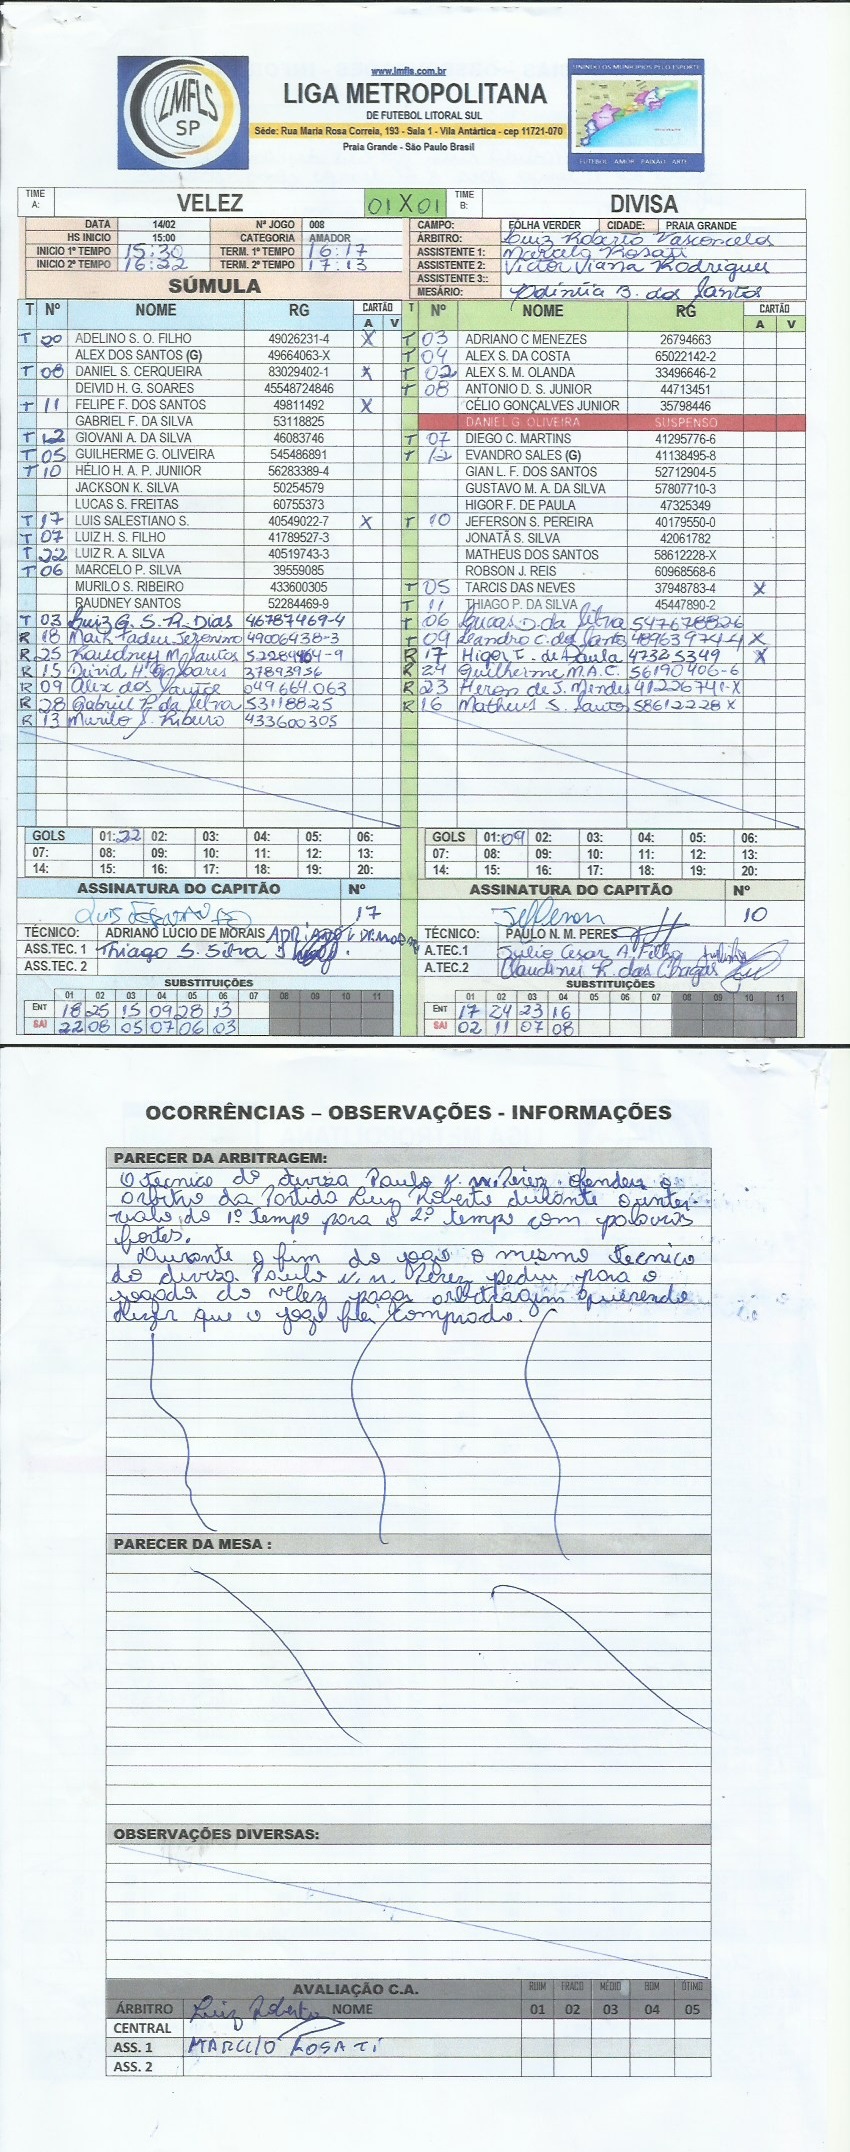 www.lmfls.com.br
LMFLS
SP
LIGA METROPOLITANA
DE FUTEBOL LITORAL SUL
Séde: Rua Maria Rosa Correia, 193 - Sala 1 - Vila Antártica - cep 11721-070
Praia Grande - São Paulo Brasil
UNINDO OS MUNICIPIOS PELO ESPORTE
FUTEBOL AMOR PAIXÃO ARTE
TIME A: VELEZ 01 X 01 TIME B: DIVISA
DATA 14/02 Nº JOGO 008
HS INICIO 15:00 CATEGORIA AMADOR
INICIO 1º TEMPO 15:30 TERM. 1º TEMPO 16:17
INICIO 2º TEMPO 16:22 TERM. 2º TEMPO 17:13
CAMPO: FOLHA VERDER CIDADE: PRAIA GRANDE
ÁRBITRO: Luiz Roberto Vasconcelos
ASSISTENTE 1: Marcelo Rosati
ASSISTENTE 2: Victor Viana Rodrigues
ASSISTENTE 3::
MESÁRIO: B. dos Santos
SÚMULA
T Nº NOME RG CARTÃO A V
T 20 ADELINO S. O. FILHO 49026231-4 X
ALEX DOS SANTOS (G) 49664063-X
T 08 DANIEL S. CERQUEIRA 83029402-1 X
DEIVID H. G. SOARES 45548724846
T 11 FELIPE F. DOS SANTOS 49811492 X
GABRIEL F. DA SILVA 53118825
T 12 GIOVANI A. DA SILVA 46083746
T 05 GUILHERME G. OLIVEIRA 545486891
T 10 HÉLIO H. A. P. JUNIIOR 56283389-4
JACKSON K. SILVA 50254579
LUCAS S. FREITAS 60755373
T 17 LUIS SALESTIANO S. 40549022-7 X
T 07 LUIZ H. S. FILHO 41789527-3
T 22 LUIZ R. A. SILVA 40519743-3
T 06 MARCELO P. SILVA 39559085
MURILO S. RIBEIRO 433600305
RAUDNEY SANTOS 52284469-9
T 03 Luiz G. S. R. Dias 46787469-4
R 18 Maik Tadeu Jeronimo 49006438-3
R 25 Raudney M. Santos 52284464-9
R 15 Deivid H. G. Soares 37893936
R 09 Alex dos Santos 049.664.063
R 28 Gabriel F. da Silva 53118825
R 13 Murilo S. Ribeiro 433600305
T Nº NOME RG CARTÃO A V
T 03 ADRIANO C MENEZES 26794663
T 04 ALEX S. DA COSTA 65022142-2
T 02 ALEX S. M. OLANDA 33496646-2
T 08 ANTONIO D. S. JUNIOR 44713451
CÉLIO GONÇALVES JUNIOR 35798446
DANIEL G. OLIVEIRA SUSPENSO
T 07 DIEGO C. MARTINS 41295776-6
T 12 EVANDRO SALES (G) 41138495-8
GIAN L. F. DOS SANTOS 52712904-5
GUSTAVO M. A. DA SILVA 57807710-3
HIGOR F. DE PAULA 47325349
T 10 JEFERSON S. PEREIRA 40179550-0
JONATÃ S. SILVA 42061782
MATHEUS DOS SANTOS 58612228-X
ROBSON J. REIS 60968568-6
T 05 TARCIS DAS NEVES 37948783-4 X
T 11 THIAGO P. DA SILVA 45447890-2
T 06 Lucas D. da Silva 547678826
T 09 Leandro C. dos Santos 48963974-4 X
R 17 Higor F. de Paula 47325349 X
R 24 Guilherme M.A.C. 56190406-6
R 23 Heron de J. Mendes 41226741-X
R 16 Matheus S. Santos 58612228X
GOLS 01: 22 02: 03: 04: 05: 06:
07: 08: 09: 10: 11: 12: 13:
14: 15: 16: 17: 18: 19: 20:
GOLS 01: 09 02: 03: 04: 05: 06:
07: 08: 09: 10: 11: 12: 13:
14: 15: 16: 17: 18: 19: 20:
ASSINATURA DO CAPITÃO Nº
17
TÉCNICO: ADRIANO LÚCIO DE MORAIS
ASS.TEC. 1 Thiago S. Silva
ASS.TEC. 2
ASSINATURA DO CAPITÃO Nº
Jefferson 10
TÉCNICO: PAULO N. M. PERES
A.TEC.1 Julio Cesar A. Filho
A.TEC.2 Claudinei R. das Chagas
SUBSTITUIÇÕES
01 02 03 04 05 06 07 08 09 10 11
ENT 18 25 15 09 28 13
SAI 22 08 05 07 06 03
SUBSTITUIÇÕES
01 02 03 04 05 06 07 08 09 10 11
ENT 17 24 23 16
SAI 02 11 07 08
OCORRÊNCIAS – OBSERVAÇÕES - INFORMAÇÕES
PARECER DA ARBITRAGEM:
O técnico do diviza Paulo N. M. Perez ofendeu o
arbitro da Partida Luiz Roberto durante o inter-
valo do 1º tempo para o 2º tempo com palavras
fortes.
Durante o fim do jogo o mesmo tecnico
do diviza Paulo N. M. Perez pediu para o
jogado do velez pagar arbitragim querendo
dizer que o jogo foi comprado.
PARECER DA MESA :
OBSERVAÇÕES DIVERSAS:
AVALIAÇÃO C.A. RUIM FRACO MÉDIO BOM ÓTIMO
ÁRBITRO Luiz Roberto NOME 01 02 03 04 05
CENTRAL
ASS. 1 MARCELO ROSATI
ASS. 2